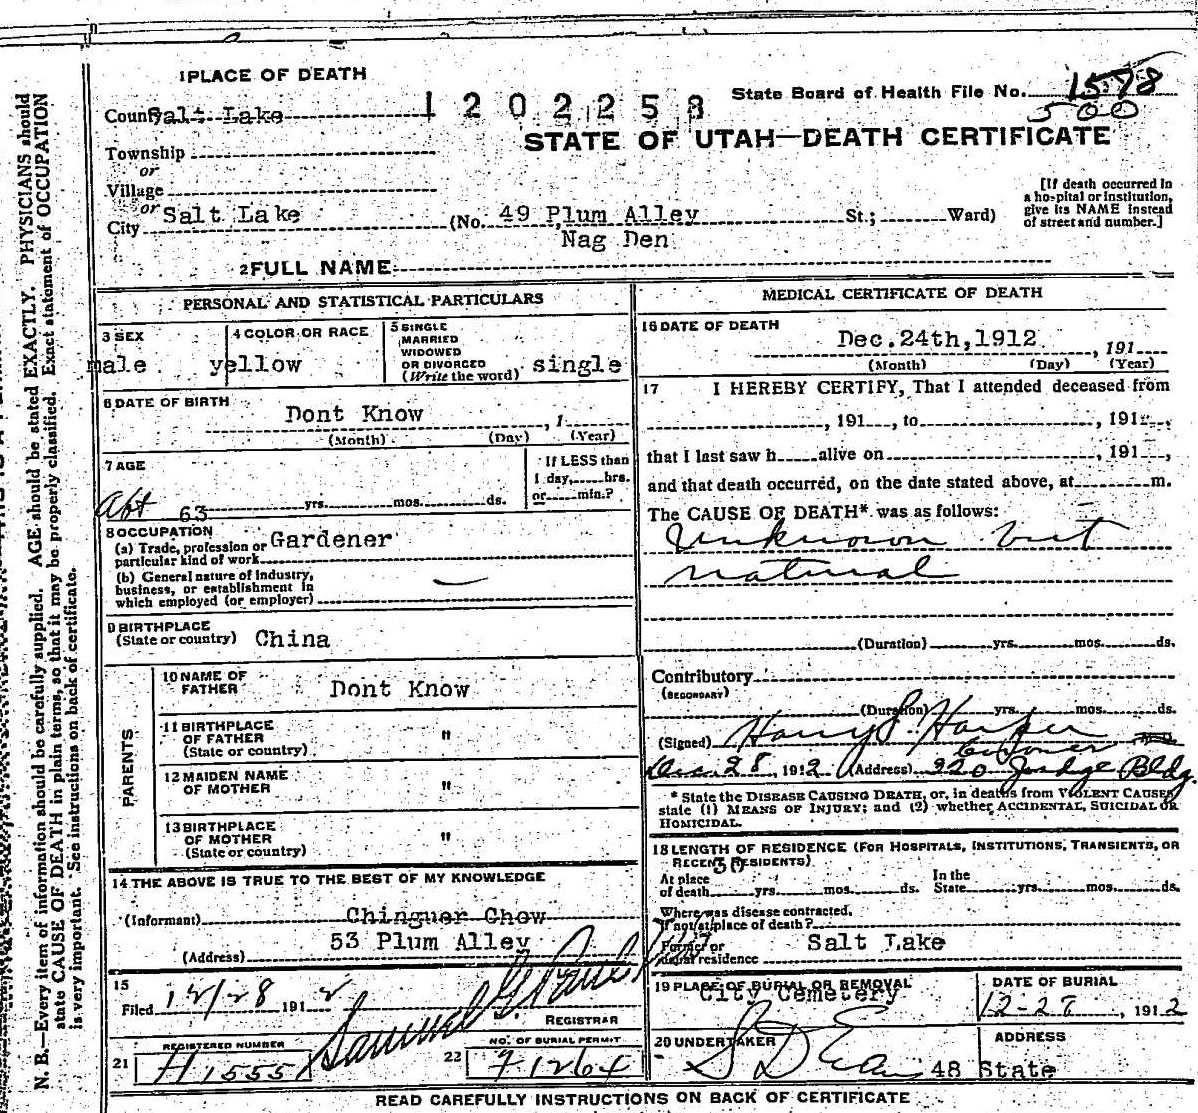 1 PLACE OF DEATH
County Salt Lake
1202258
State Board of Health File No. 1578
500
STATE OF UTAH—DEATH CERTIFICATE
Township
or
Village
or
City Salt Lake (No. 49 Plum Alley St.; Ward)
[If death occurred in a hospital or institution, give its NAME instead of street and number.]
Nag Den
2 FULL NAME
PERSONAL AND STATISTICAL PARTICULARS
3 SEX
male
4 COLOR OR RACE
yellow
5 SINGLE
MARRIED
WIDOWED
OR DIVORCED
(Write the word) single
6 DATE OF BIRTH
Dont Know , 1
(Month) (Day) (Year)
7 AGE
Abt 63 yrs. mos. ds.
If LESS than
1 day, hrs.
or min.?
8 OCCUPATION
(a) Trade, profession or
particular kind of work Gardener
(b) General nature of industry,
business, or establishment in
which employed (or employer)
9 BIRTHPLACE
(State or country) China
PARENTS
10 NAME OF
FATHER Dont Know
11 BIRTHPLACE
OF FATHER "
(State or country)
12 MAIDEN NAME
OF MOTHER "
13 BIRTHPLACE
OF MOTHER "
(State or country)
14 THE ABOVE IS TRUE TO THE BEST OF MY KNOWLEDGE
(Informant) Chinguer Chow
53 Plum Alley
(Address)
15
Filed 12/28 1912 Samuel G.
REGISTRAR
REGISTERED NUMBER
21 H 1555
NO. OF BURIAL PERMIT
22 71264
MEDICAL CERTIFICATE OF DEATH
16 DATE OF DEATH
Dec. 24th, 1912 , 191
(Month) (Day) (Year)
17 I HEREBY CERTIFY, That I attended deceased from
, 191 , to , 191 ,
that I last saw h alive on , 191 ,
and that death occurred, on the date stated above, at m.
The CAUSE OF DEATH* was as follows:
Unknown but
natural
(Duration) yrs. mos. ds.
Contributory
(SECONDARY)
(Duration) yrs. mos. ds.
(Signed) Harry S. Harper M.D.
Coroner
Dec. 28, 1912 (Address) 320 Judge Bldg.
* State the DISEASE CAUSING DEATH, or, in deaths from VIOLENT CAUSES,
state (1) MEANS OF INJURY; and (2) whether ACCIDENTAL, SUICIDAL OR
HOMICIDAL.
18 LENGTH OF RESIDENCE (FOR HOSPITALS, INSTITUTIONS, TRANSIENTS, OR
RECENT RESIDENTS)
30
At place
of death yrs. mos. ds.
In the
State yrs. mos. ds.
Where was disease contracted,
if not at place of death?
Former or
usual residence Salt Lake
19 PLACE OF BURIAL OR REMOVAL
City Cemetery
DATE OF BURIAL
12-28 , 1912
20 UNDERTAKER
S D Evans
ADDRESS
48 State
READ CAREFULLY INSTRUCTIONS ON BACK OF CERTIFICATE
N. B.—Every item of information should be carefully supplied. AGE should be stated EXACTLY. PHYSICIANS should
state CAUSE OF DEATH in plain terms, so that it may be properly classified. Exact statement of OCCUPATION
is very important. See instructions on back of certificate.